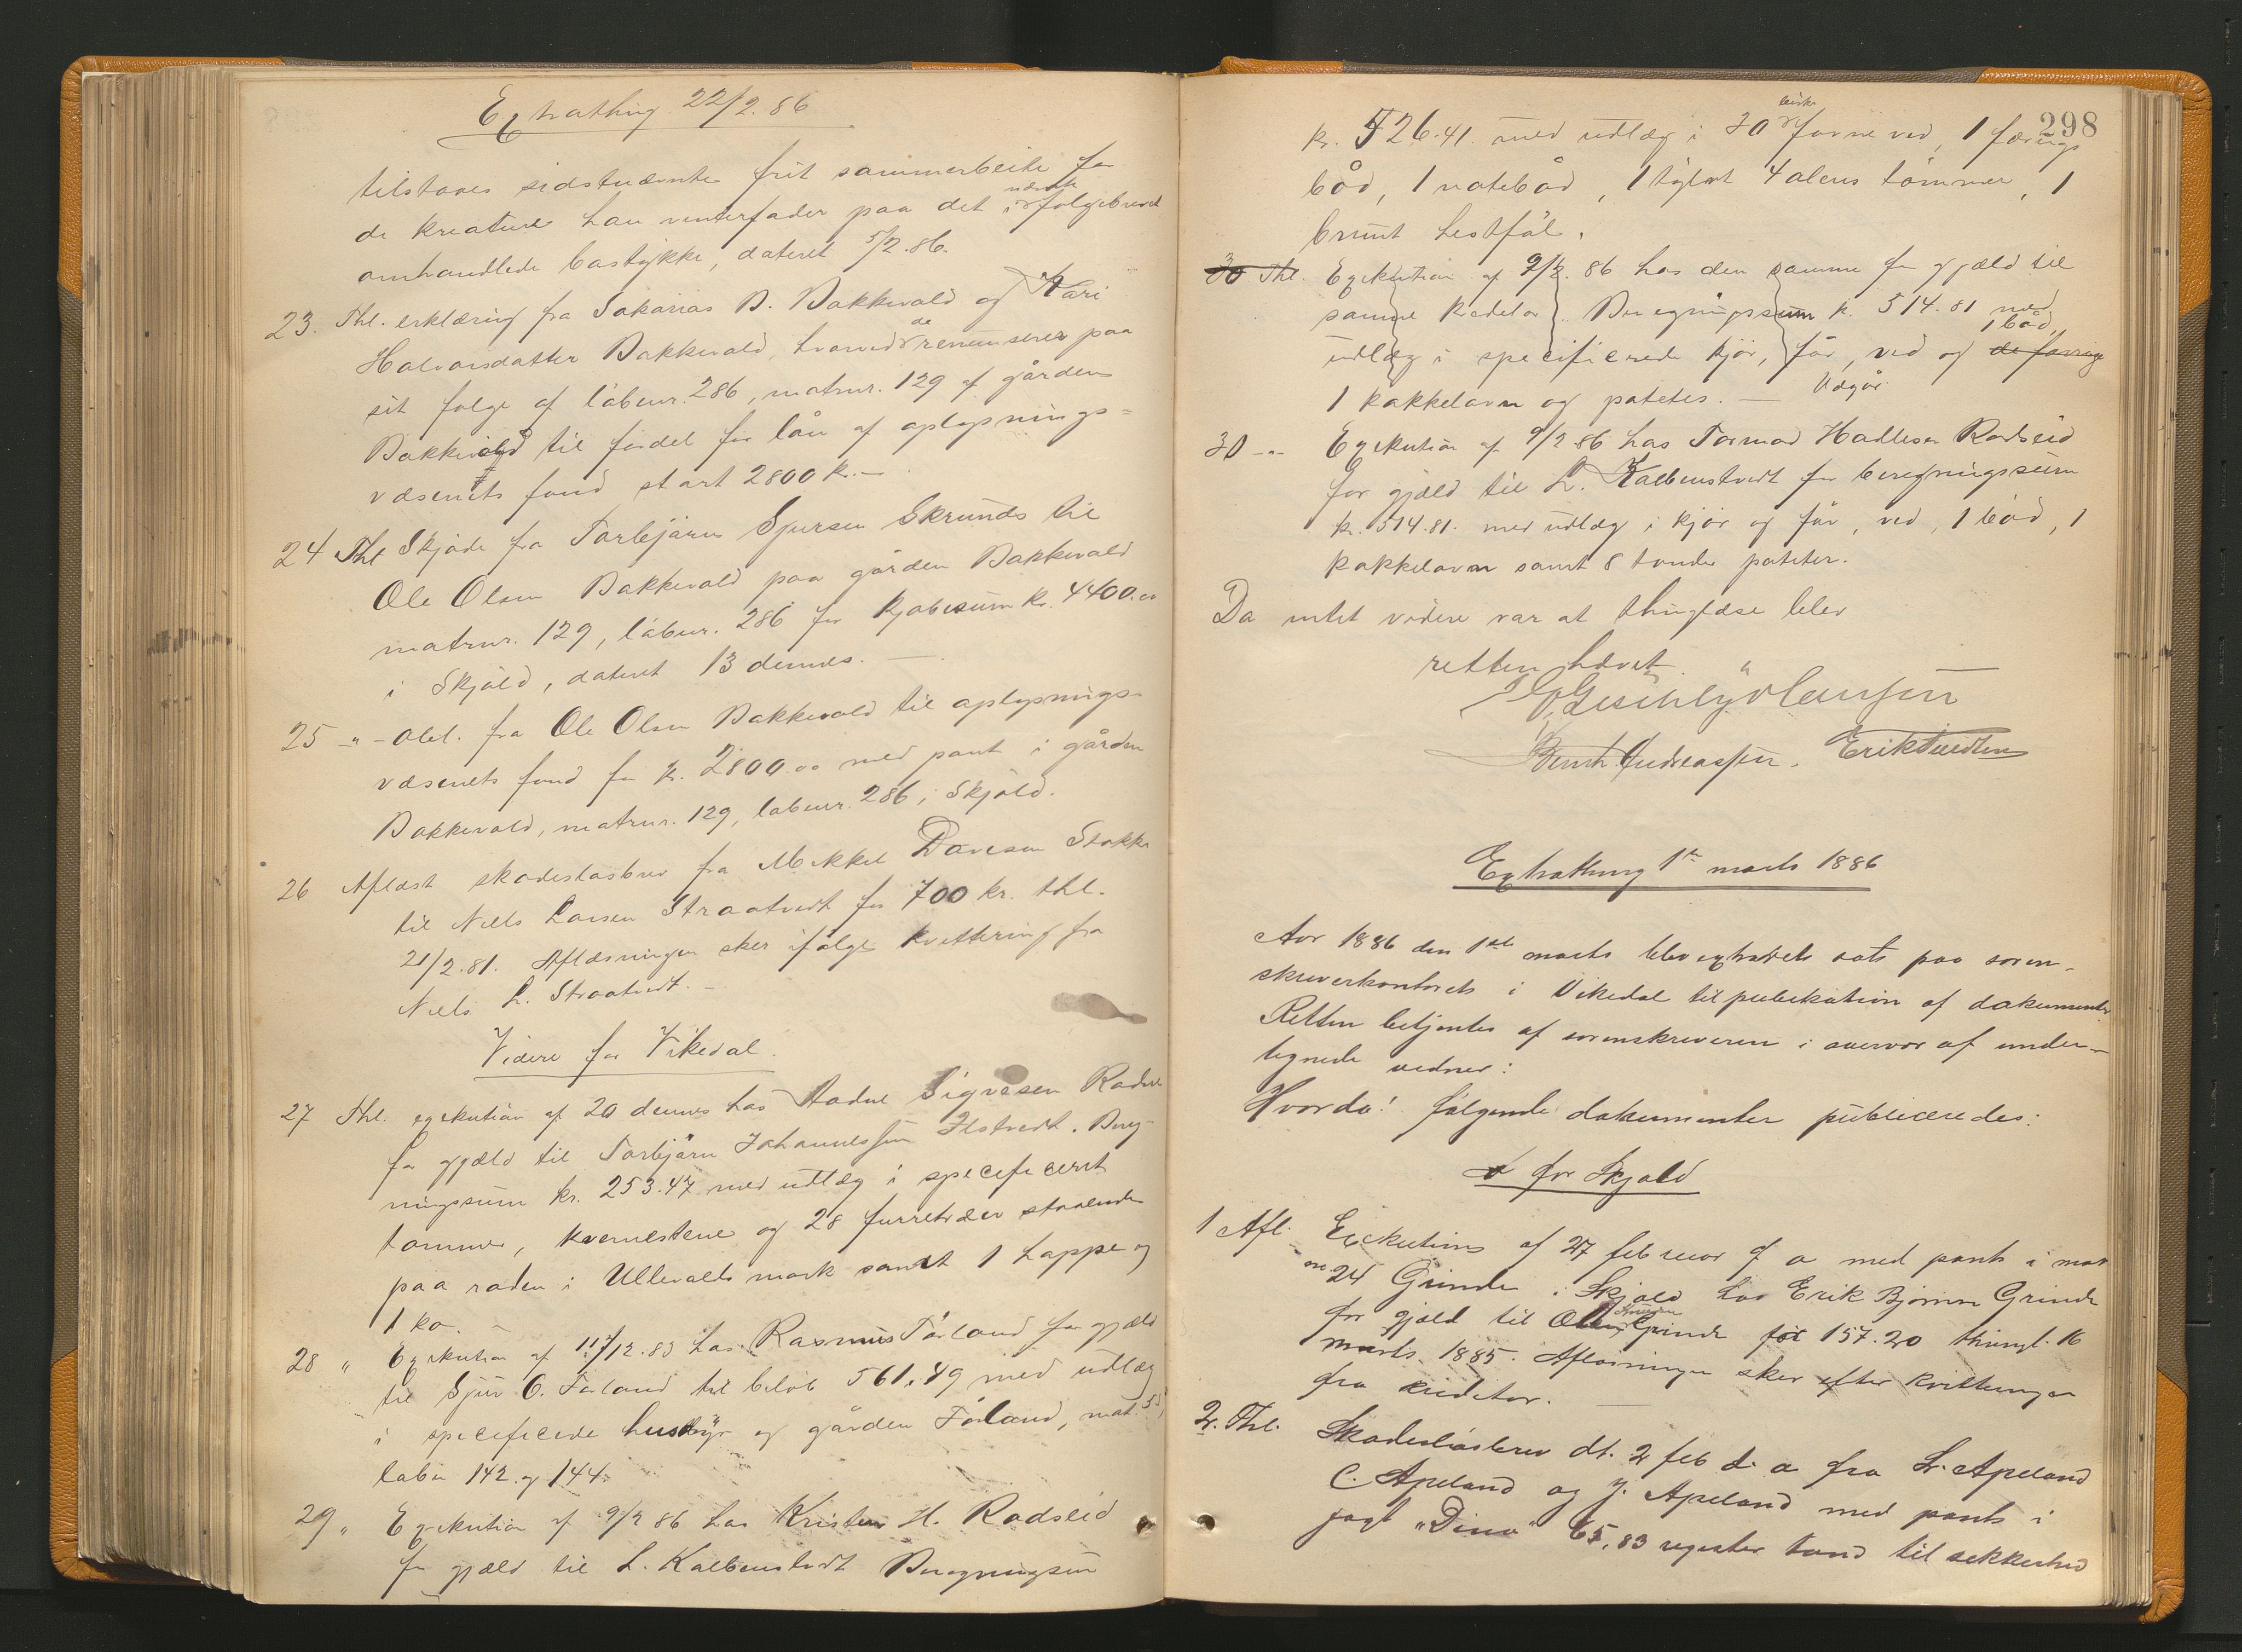 Extrathing 22/2.86
tilstaaes sidstnævnte frit sommerbeite for
de kreature han vinterføder paa det i nævnte folgebrevet
omhandlede bøstykke, dateret 5/2.86.
23. Thl. erklæring fra Sakarias B. Bakkevold og Kari
Halvorsdatter Bakkevold, hvorved de renunserer paa
sit folge af løbenr. 286, matrnr. 129 af gården
Bakkevold til fordel for lån af oplysnings-
væsenets fond stort 2800 k. —
24 Thl Skjøde fra Torbjørn Sjursen Skrunds til
Ole Olsen Bakkevold paa gården Bakkevold
matrnr. 129, løbnr. 286 for kjøbesum kr. 4400.00
i Skjold, dateret 13 dennes. —
25 - " - Obl. fra Ole Olsen Bakkevold til oplysnings-
væsenets fond for k. 2800.00 med pant i gården
Bakkevold, matrnr. 129, løbenr. 286 i Skjold.
26 Aflæst skadesløsbrev fra Mikkel Davidsen Stokke
til Niels Larsen Straatveit for 700 kr. thl.
21/2.81. Aflæsningen sker ifølge kvittering fra
Niels L. Straatveit. —
Videre for Vikedal.
27 Thl. exekution af 20 dennes hos Aadne Sigvasen
for gjæld til Torbjørn Johannessen Ilstvedt. Bereg-
ningssum kr. 253.47 med udlæg i specificeret
tømmer, kvernestene og 28 furretræer staaende
paa roden i Ullevolds mark samt 1 hoppe og
1 ko. —
28 " Exekution af 11/12.83 hos Rasmus Førland for gjæld
til Sjur O. Førland til beløb 561.49 med udlæg
i specificerede husdyr og gården Førland, mat. 55,
løbn 142 og 144.
29 " Exekution af 9/2 86 hos Kristen H. Rødseid
for gjæld til L. Kalbenstvedt Beregningsum
298
kr. 526.41 med udlæg i 30 birke favne ved, 1 færings
båd, 1 notebåd, 1 tylvt 4 alens tømmer, 1
brunt hestføl.
30 Thl. Exekution af 9/2. 86 hos den samme for gjæld til
samme kreditor. Beregningssum k. 514.81 med
udlæg i specificerede kjør, får, ved og de færinge 1 båd,
1 kakkelovn og poteter. — Udgår.
30 - " - Exekution af 9/2 86 hos Tormod Hadlesen Rødseid
for gjæld til L. Kalbenstvedt for beregningssum
kr. 514.81. med udlæg i kjør og får, ved, 1 båd, 1
kakkelovn samt 8 tønder poteter.
Da intet videre var at thinglæse blev
retten hævet
Bernh. Andreassen. Erik
Extrathing 1ste marts 1886
Aar 1886 den 1ste marts blev extrareth sat paa soren-
skriverkontoret i Vikedal til publikation af dokumenter
Retten betjentes af sorenskriveren i overvær af under-
tegnede vidner:
Hvorda! følgende dokumenter publiceredes:
for Skjold
1 Afl. Exekutions af 27 februar f a med pant i mat
nr 24 Grinde i Skjold hos Erik Bjørnsen Grinde
for gjæld til Grinde for 157.20 thingl. 16
marts 1885. Aflæsningen sker efter kvitteringen
fra kreditor. —
2. Thl. Skadesløsbrev dt. 2 feb d. a fra L. Apeland
C. Apeland og J. Apeland med pant i
jagt "Dina" 65,83 register tons til sikkerhed